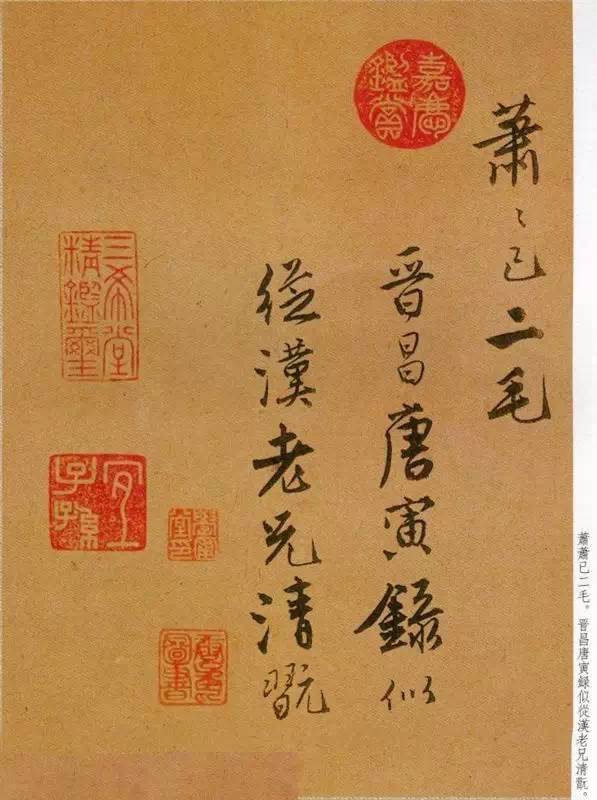 嘉慶鑑賞
蕭〻已二毛
晉昌唐寅錄似
從漢老兄清翫
三希堂精鑑璽
宜子孫
蕭蕭已二毛。晉昌唐寅録似從漢老兄清翫。